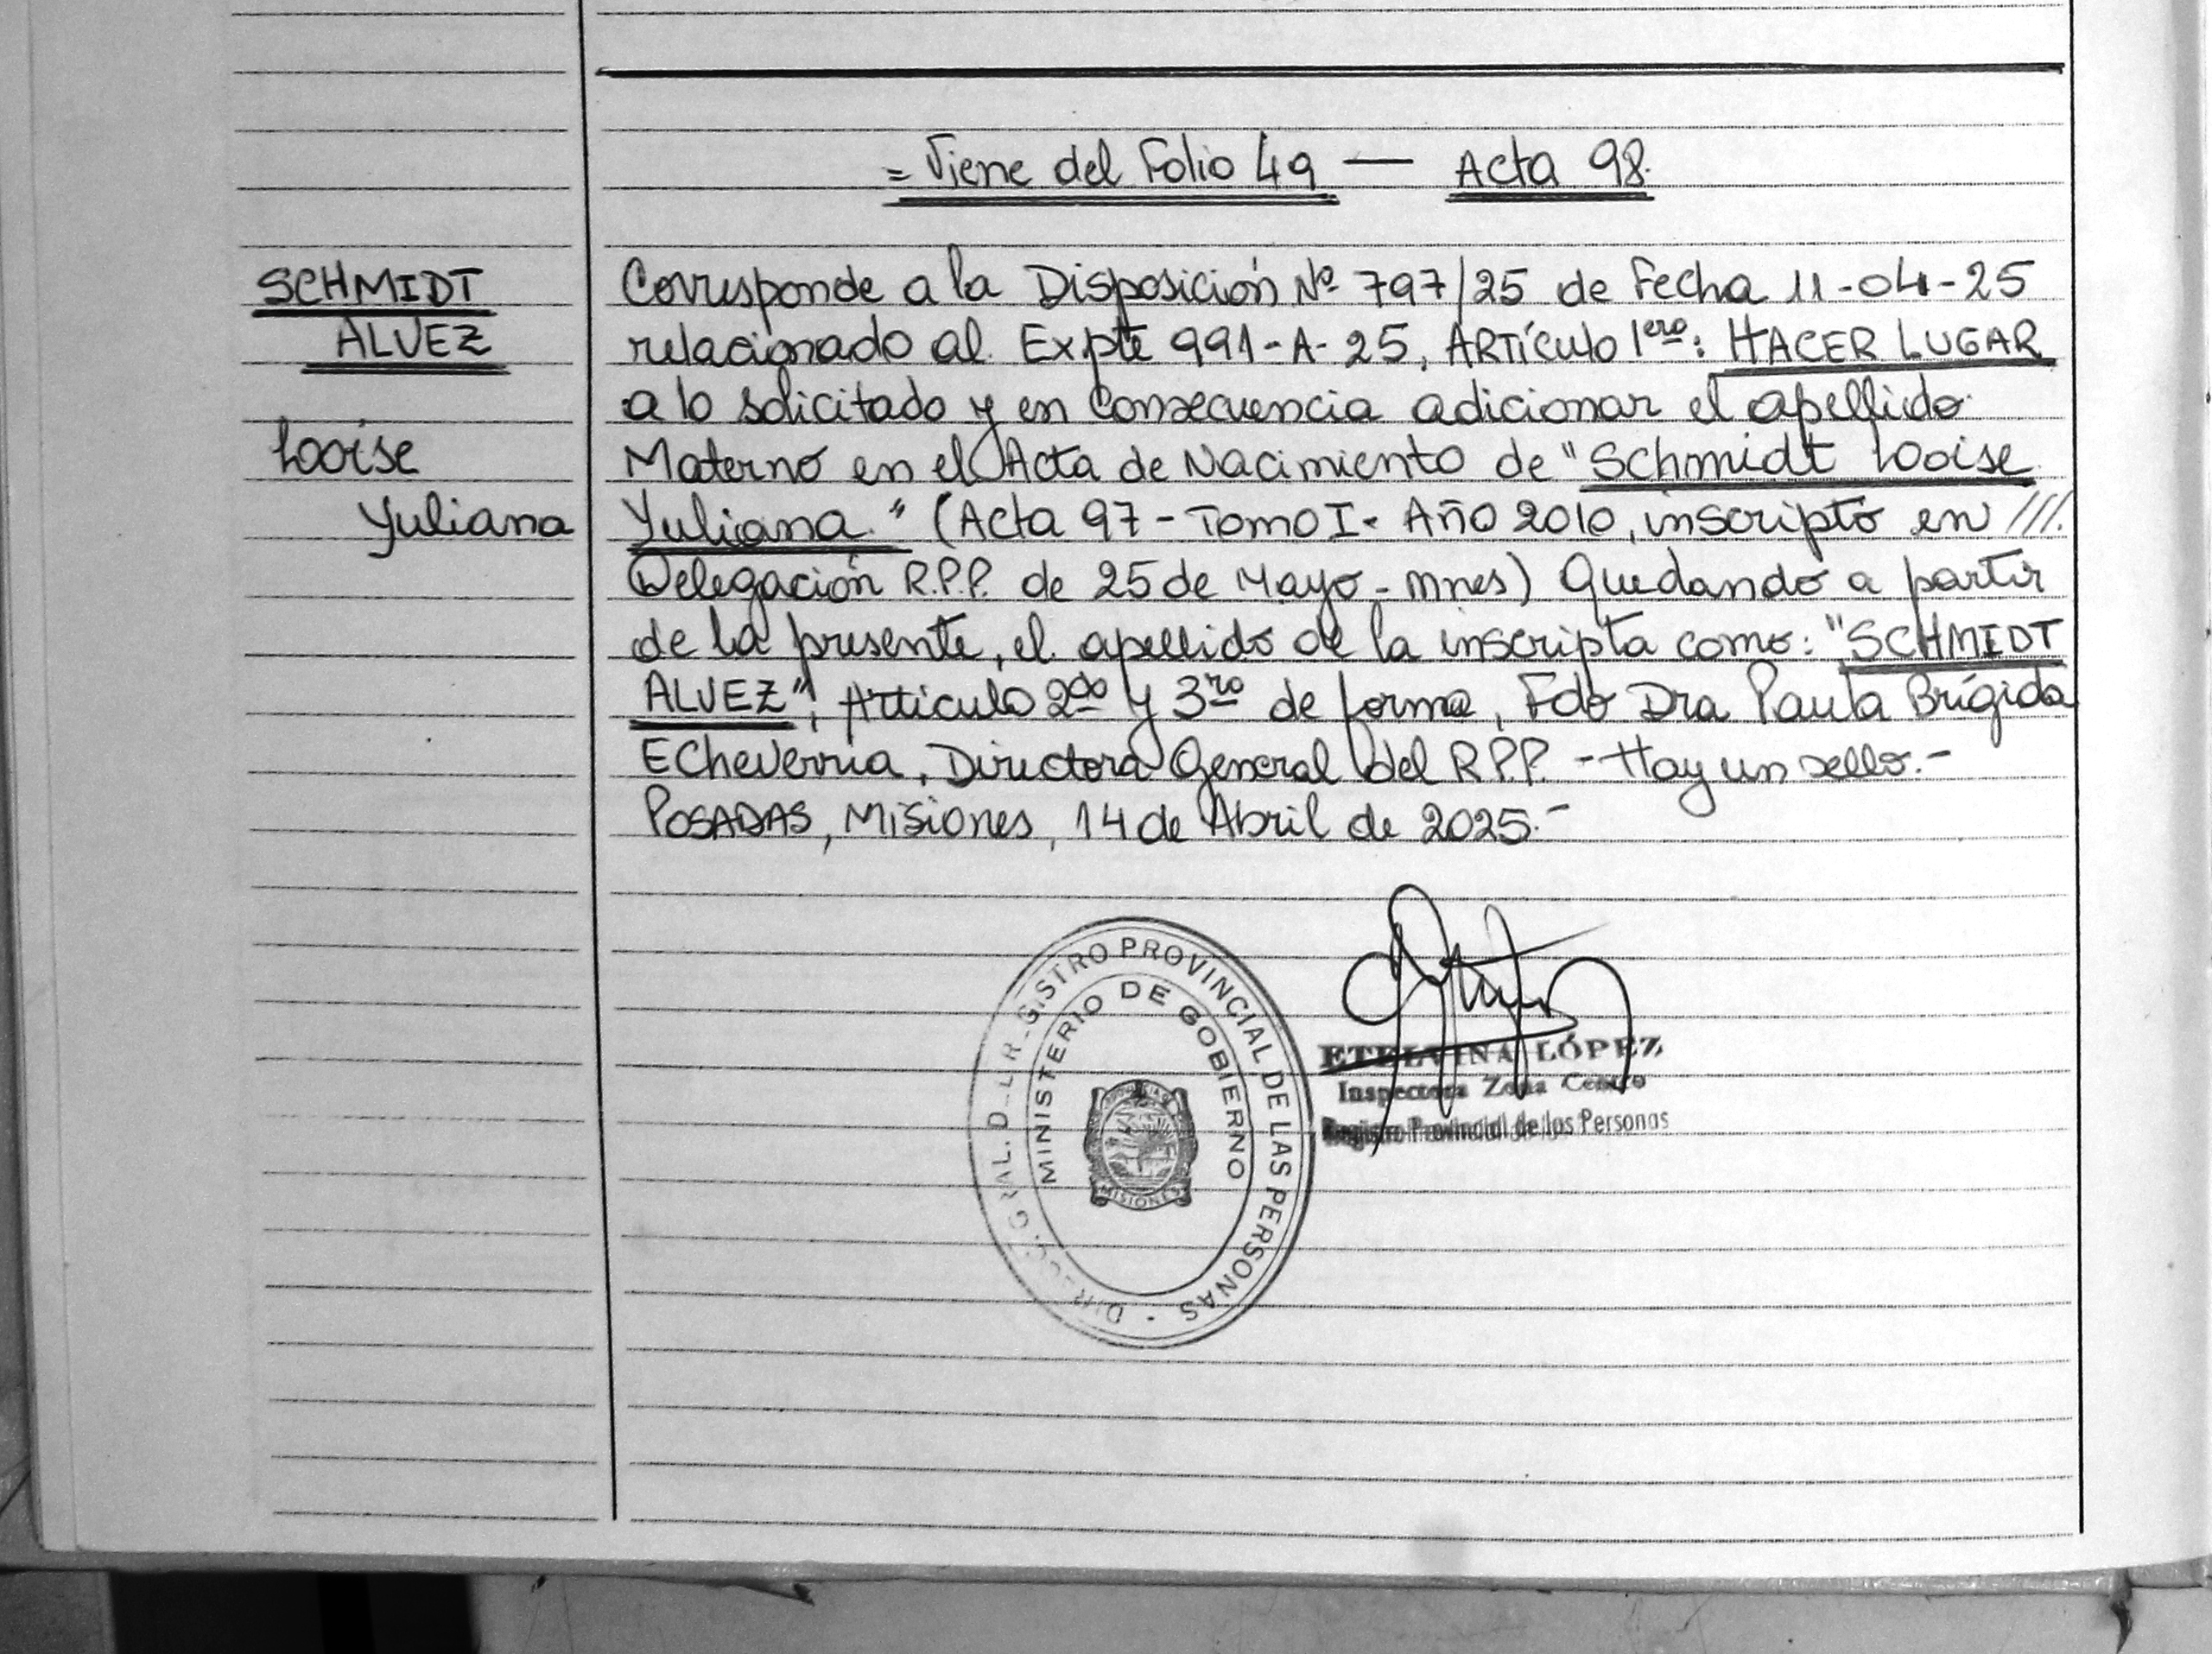 = Viene del Folio 49 — Acta 98.
SCHMIDT
ALVEZ
Looise
Yuliana
Corresponde a la Disposición Nº 797/25 de Fecha 11-04-25
relacionado al Expte 991-A-25, ARTÍCULO 1ero: HACER LUGAR
a lo solicitado y en Consecuencia adicionar el apellido
Materno en el Acta de Nacimiento de "Schmidt Looise
Yuliana." (Acta 97 - Tomo I - Año 2010, inscripto en ///.
Delegación R.P.P. de 25 de Mayo - Mnes) Quedando a partir
de la presente, el apellido de la inscripta como: "SCHMIDT
ALVEZ"; Artículo 2do y 3ro de forma, Fdo Dra Paula Brígida
Echeverria, Directora General del R.P.P. - Hay un sello.-
POSADAS, Misiones, 14 de Abril de 2025.-
REGISTRO PROVINCIAL DE LAS PERSONAS
MINISTERIO DE GOBIERNO
MISIONES
ETELVINA LÓPEZ
Inspectora Zona Centro
Registro Provincial de las Personas